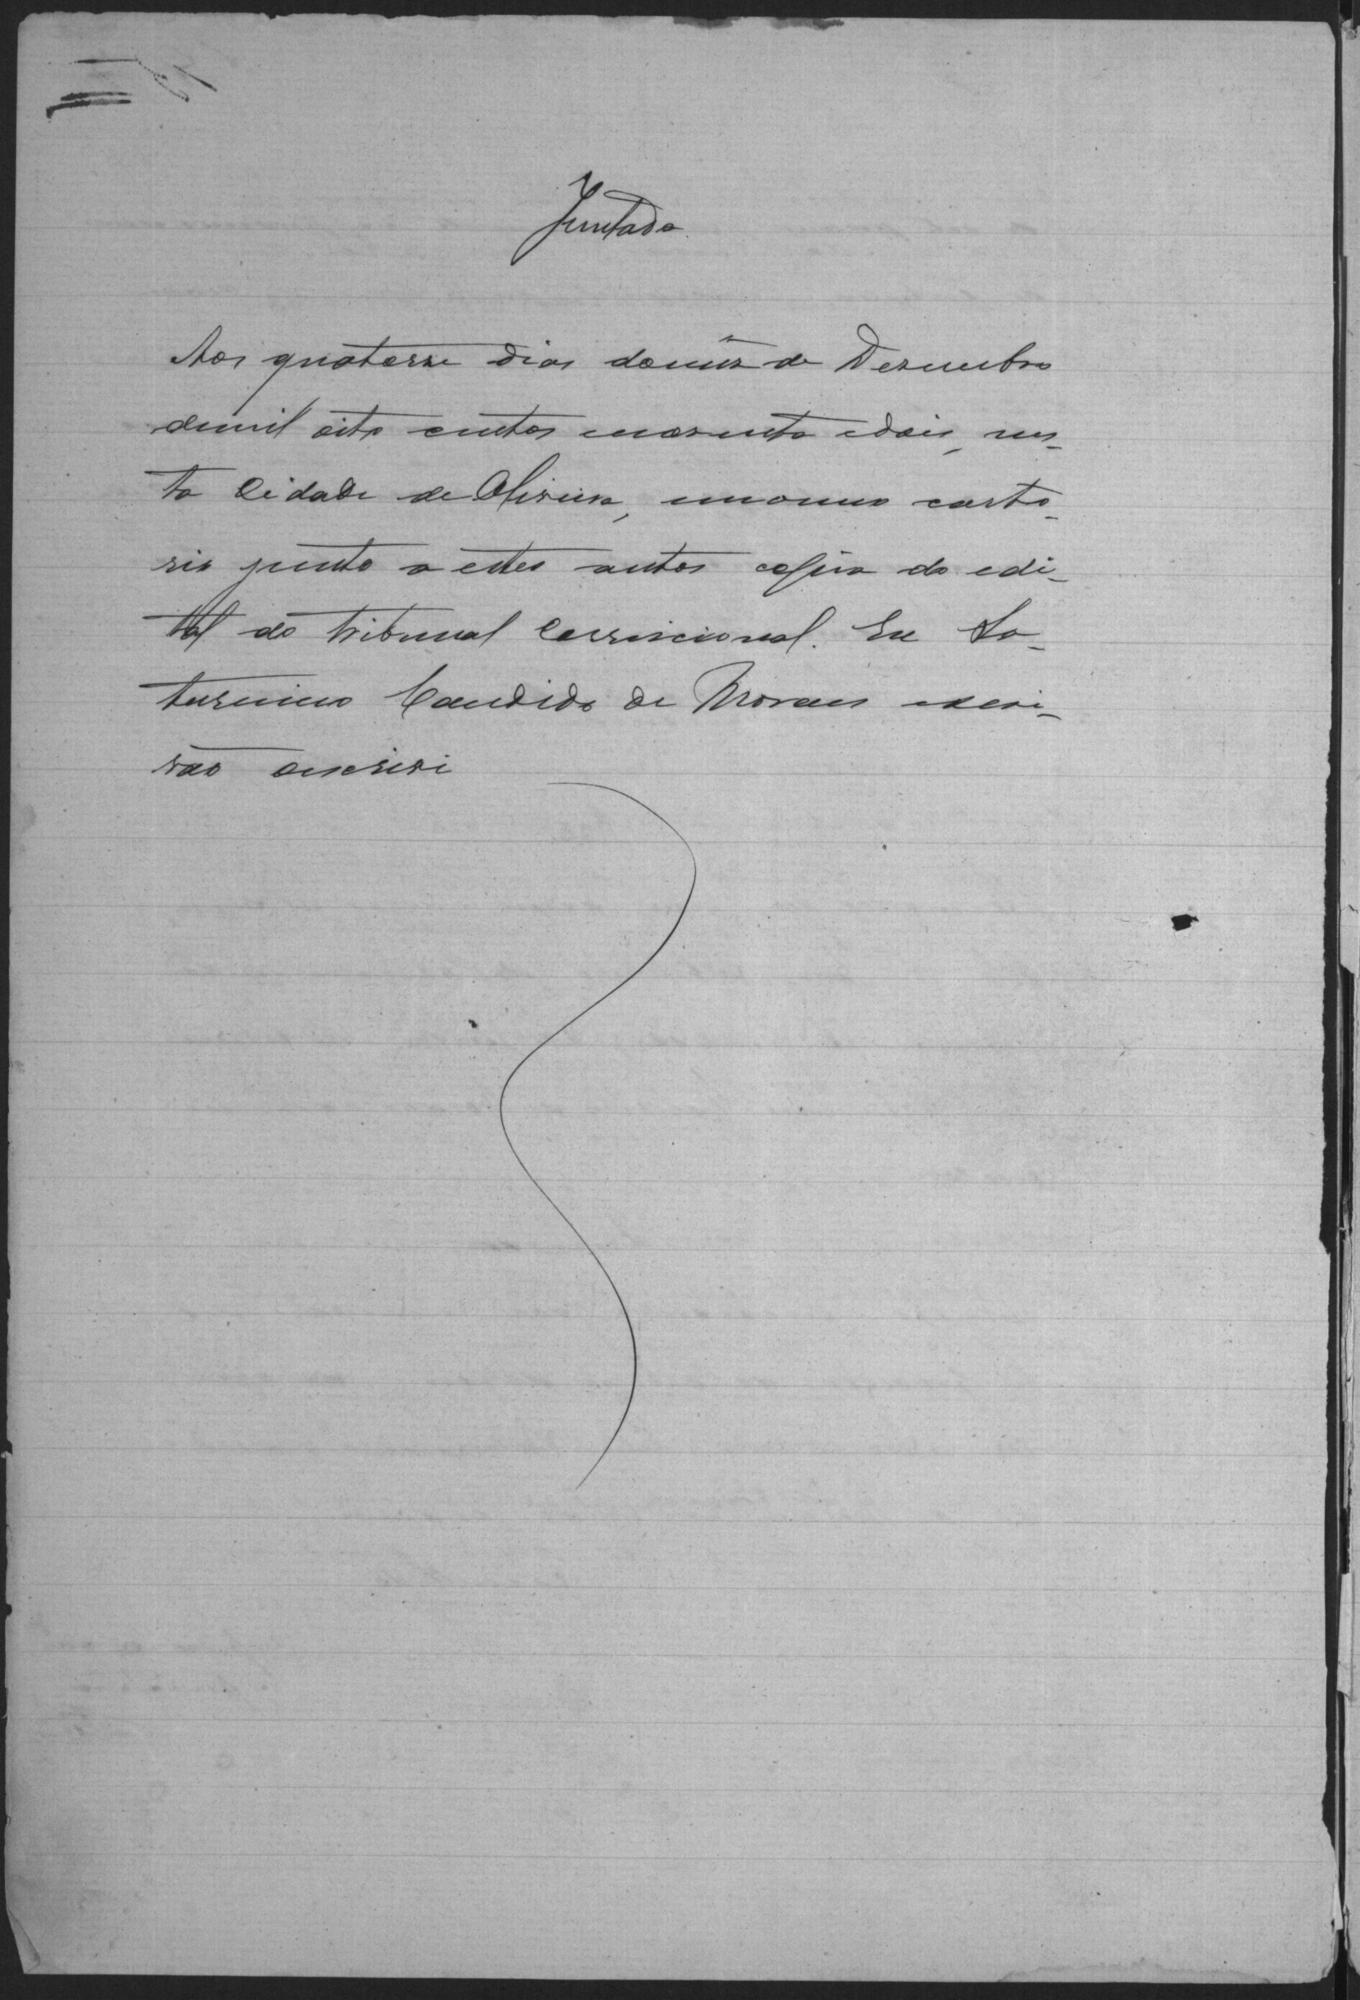 Juntada
Aos quatorze dias do mês de Dezembro
de mil oito centos enoventa edois, nes-
ta Cidade de Oliveira, em o meu carto-
rio junto a estes autos copia do edi-
tal do tribunal Correicional. Eu Sa-
turnino Candido de Moraes escri-
vão o escrivi